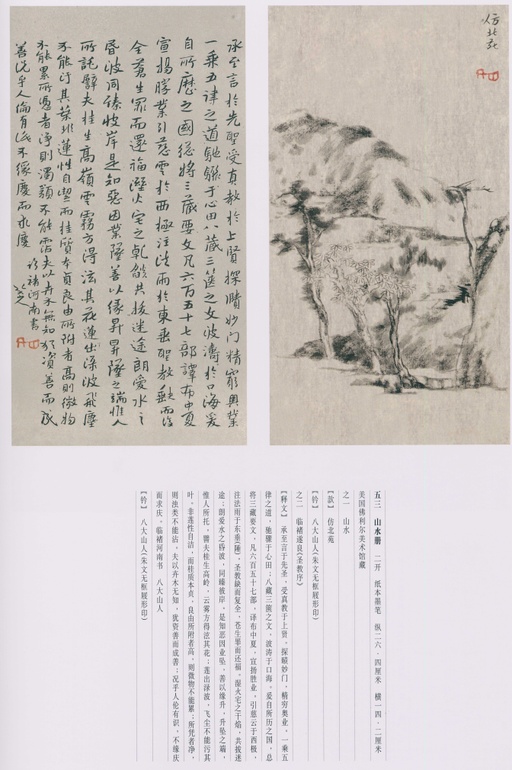 仿北苑
承至言於先聖受真教於上賢探賾妙門精窮奧業
一乘五律之道馳驟於心田八藏三篋之文波濤於口海爰
自所歷之國總將三藏要文凡六百五十七部譯布中夏
宣揚勝業引慈雲於西極注法雨於東垂聖教缺而復
全蒼生罪而還福濕火宅之乾焰共拔迷途朗愛水之
昏波同臻彼岸是知惡因業墜善以緣昇昇墜之端惟人
所託譬夫桂生高嶺雲霧方得泫其花蓮出淥波飛塵
不能污其葉非蓮性自潔而桂質本貞良由所附者高則微物
不能累所憑者淨則濁類不能霑夫以卉木無知猶資善而成
善況乎人倫有識不緣慶而求慶 臨褚河南書
八大山人
五三 山水册 二开 纸本墨笔 纵二六．四厘米 横一四．二厘米
美国佛利尔美术馆藏
之一 山水
【款】 仿北苑
【钤】 八大山人(朱文无框屐形印)
之二 临褚遂良《圣教序》
【释文】 承至言于先圣，受真教于上贤，探赜妙门，精穷奥业，一乘五
律之道，驰骤于心田；八藏三箧之文，波涛于口海。爰自所历之国，总
将三藏要文，凡六百五十七部，译布中夏，宣扬胜业，引慈云于西极，
注法雨于东垂[陲]，圣教缺而复全，苍生罪而还福。湿火宅之干焰，共拔迷
途；朗爱水之昏波，同臻彼岸。是知恶因业坠，善以缘升，升坠之端，
惟人所托，譬夫桂生高岭，云雾方得泫其花；莲出渌波，飞尘不能污其
叶。非莲性自洁，而桂质本贞，良由所附者高，则微物不能累；所凭者净，
则浊类不能沾。夫以卉木无知，犹资善而成善；况乎人伦有识，不缘庆
而求庆。临褚河南书 八大山人
【钤】 八大山人(朱文无框屐形印)